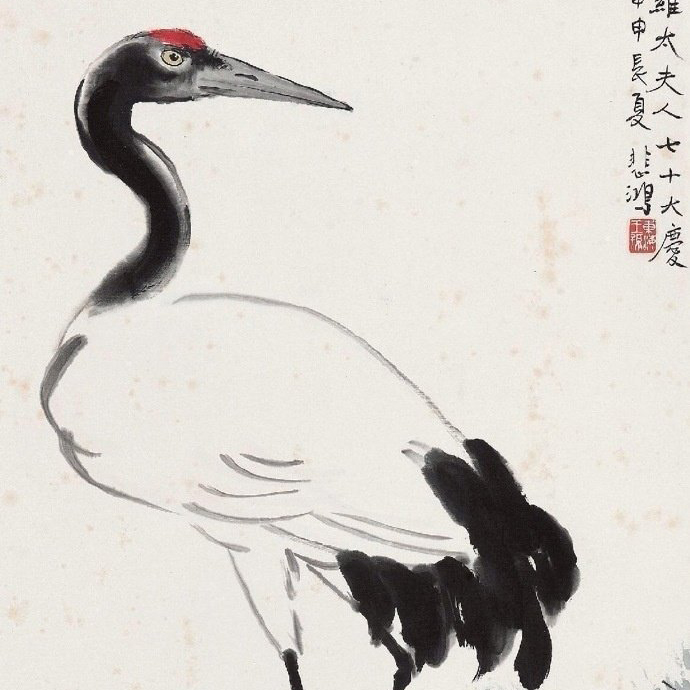 羅太夫人七十大慶
甲申長夏 悲鴻
東海王孫